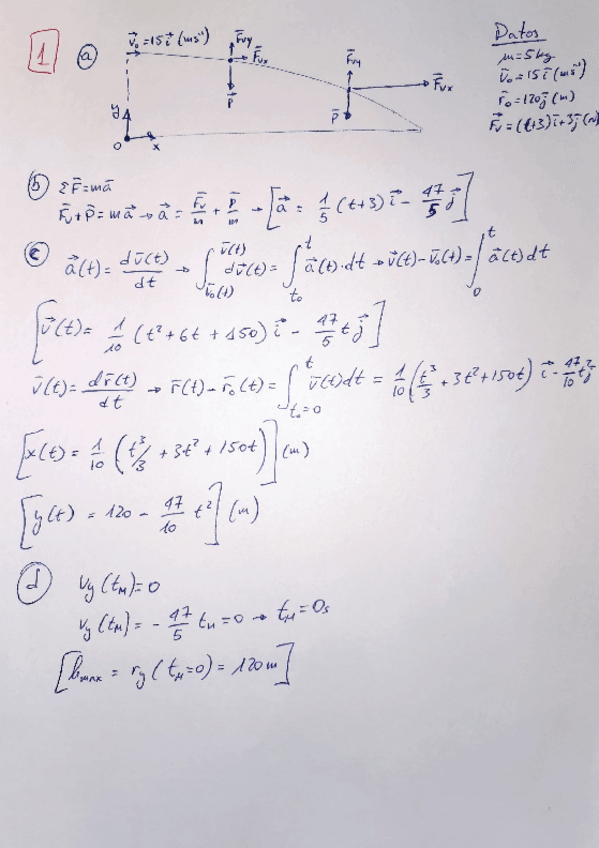 1 a v⃗₀=15i⃗ (ms⁻¹) F⃗vy F⃗vx P⃗ F⃗vy F⃗vx P⃗ y O x
Datos
m=5kg
v⃗₀=15i⃗ (ms⁻¹)
r⃗₀=120j⃗ (m)
F⃗v=(t+3)i⃗+3j⃗ (N)
b ΣF⃗=ma⃗
F⃗v+P⃗=ma⃗ → a⃗ = F⃗v/m + P⃗/m → [a⃗ = 1/5 (t+3) i⃗ - 47/5 j⃗]
c a⃗(t)= dv⃗(t)/dt → ∫_{v⃗₀(t)}^{v⃗(t)} dv⃗(t) = ∫_{t₀}^{t} a⃗(t)·dt → v⃗(t)-v⃗₀(t)= ∫_{0}^{t} a⃗(t)dt
[v⃗(t)= 1/10 (t²+6t+150) i⃗ - 47/5 t j⃗]
v⃗(t)= dr⃗(t)/dt → r⃗(t)-r⃗₀(t)= ∫_{t₀=0}^{t} v⃗(t)dt = 1/10 (t³/3 + 3t²+150t) i⃗ - 47/10 t² j⃗
[x(t)= 1/10 (t³/3 +3t²+150t)] (m)
[y(t) = 120 - 47/10 t²] (m)
d vy(tM)=0
vy(tM)= - 47/5 tM=0 → tM=0s
[hmax = ry (tM=0) = 120m]